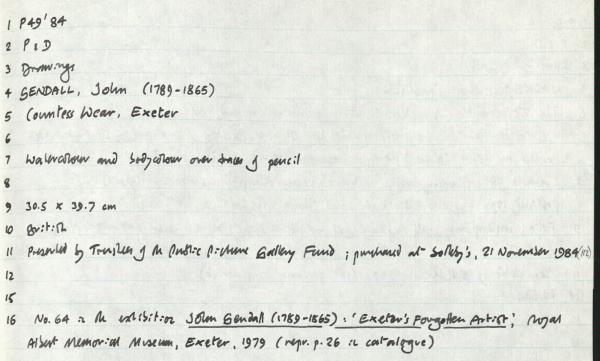 1 P49'84
2 P&D
3 Drawings
4 GENDALL, John (1789-1865)
5 Countess Wear, Exeter
6
7 Watercolour and bodycolour over traces of pencil
8
9 30.5 x 39.7 cm
10 British
11 Presented by Trustees of the Public Picture Gallery Fund; purchased at Sotheby's, 21 November 1984 (112)
12
15
16 No. 64 in the exhibition John Gendall (1789-1865): 'Exeter's Forgotten Artist', Royal
Albert Memorial Museum, Exeter, 1979 (repr. p.26 in catalogue)